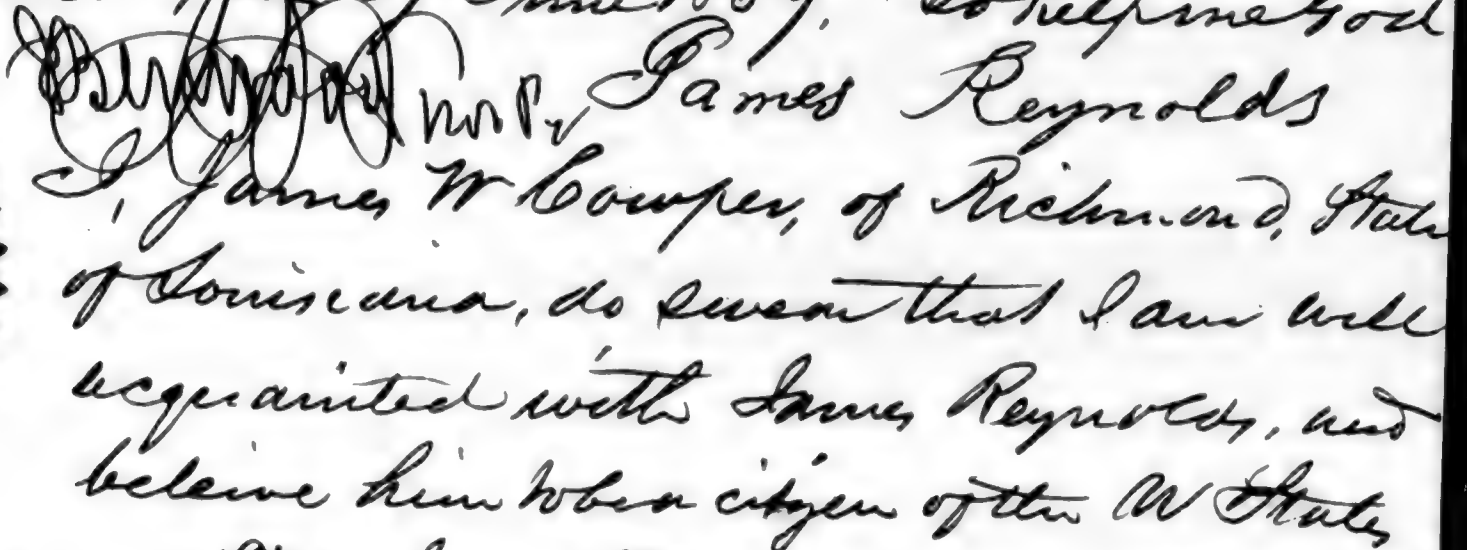 So help me God
James Reynolds
I, James W Cowper, of Richmond, State
of Louisiana, do swear that I am well
acquainted with James Reynolds, and
beleive him to be a citizen of the U States